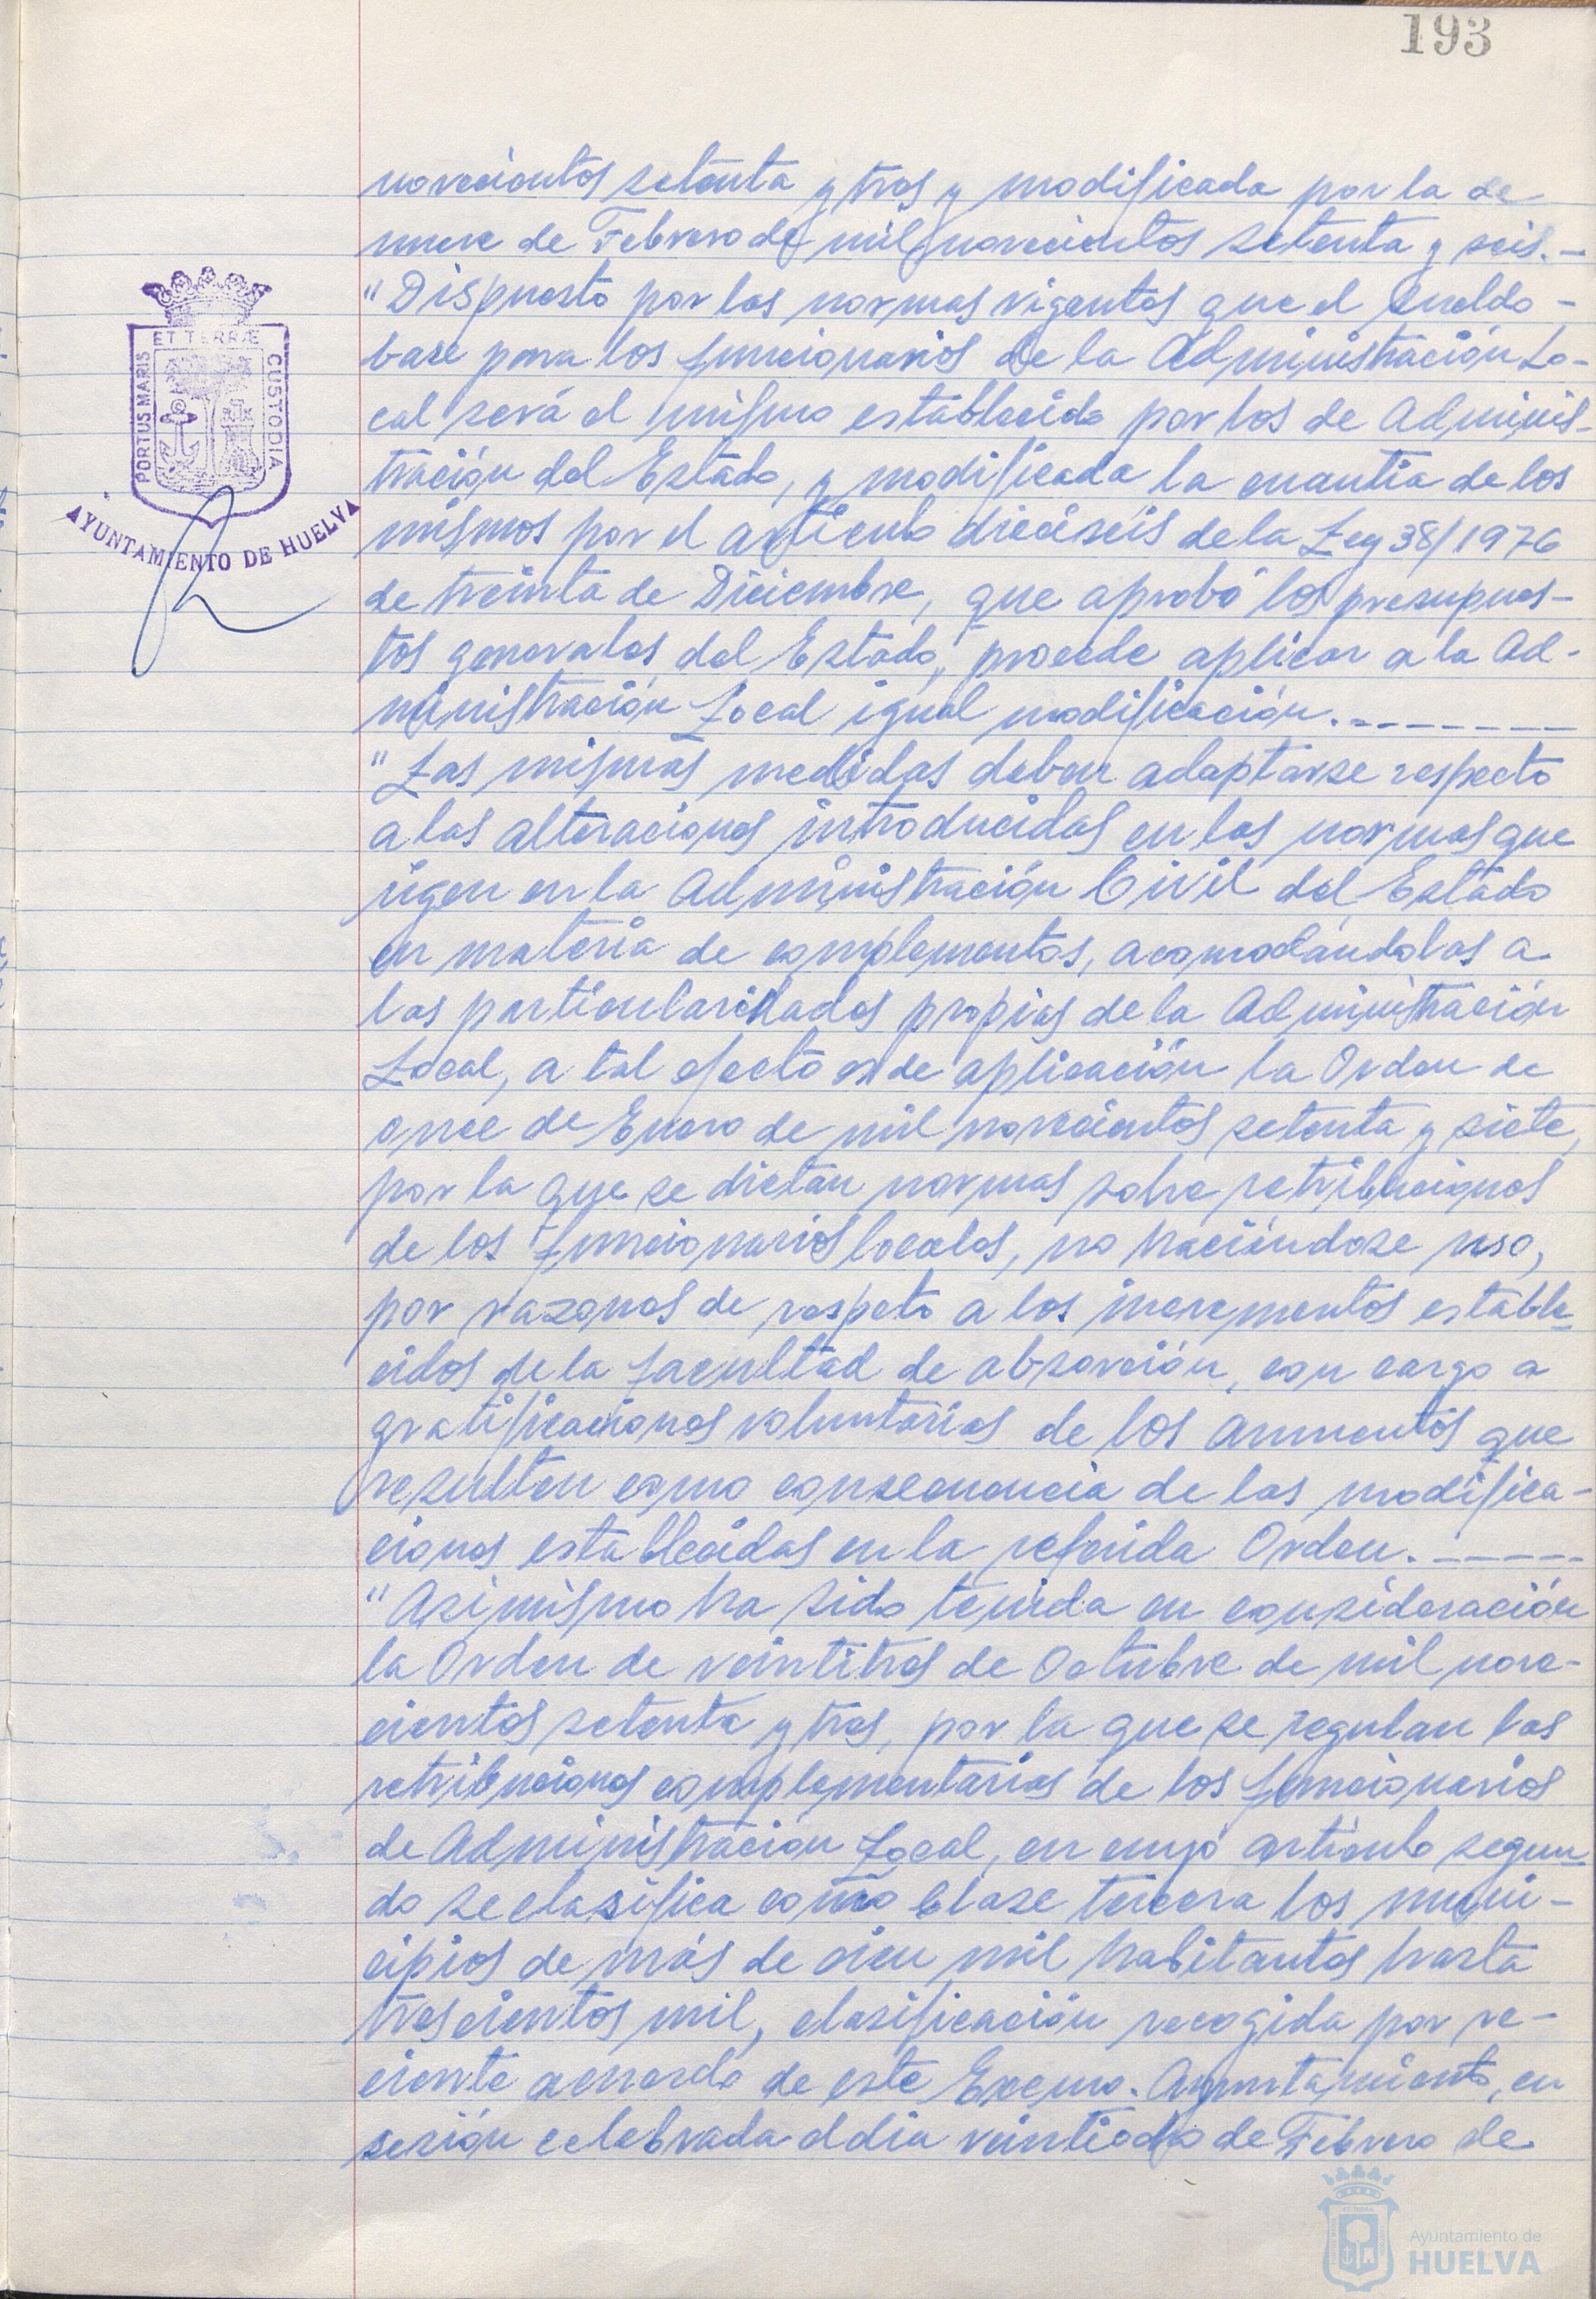 193
novecientos setenta y tres y modificada por la de
nueve de Febrero de mil novecientos setenta y seis.—
"Dispuesto por las normas vigentes que el sueldo—
base para los funcionarios de la Administración Lo-
cal será el mismo establecido por los de Adminis-
tración del Estado, y modificada la cuantia de los
mismos por el articulo dieciseis de la Ley 38/1976
de treinta de Diciembre, que aprobó los presupues-
tos generales del Estado, procede aplicar a la Ad-
ministración Local igual modificación.--------
"Las mismas medidas deben adaptarse respecto
a las alteraciones introducidas en las normas que
rigen en la Administración Civil del Estado
en materia de complementos, acomodándolas a
las particularidades propias de la Administración
Local, a tal efecto es de aplicación la Orden de
once de Enero de mil novecientos setenta y siete,
por la que se dictan normas sobre retribuciones
de los funcionarios locales, no haciéndose uso,
por razones de respeto a los incrementos estable-
cidos de la facultad de absorción, con cargo a
gratificaciones voluntarias de los aumentos que
resulten como consecuencia de las modifica-
ciones establecidas en la referida Orden.------
"Asimismo ha sido tenida en consideración
la Orden de veintitres de Octubre de mil nove-
cientos setenta y tres, por la que se regulan las
retribuciones complementarias de los funcionarios
de Administracion Local, en cuyo artículo segun-
do se clasifica como Clase tercera los muni-
cipios de más de cien mil habitantes hasta
trescientos mil, clasificación recogida por re-
ciente acuerdo de este Excmo. Ayuntamiento, en
sesión celebrada el dia veintiocho de Febrero de
PORTUS MARIS
ET TERRÆ
CUSTODIA
AYUNTAMIENTO DE HUELVA
Ayuntamiento de
HUELVA